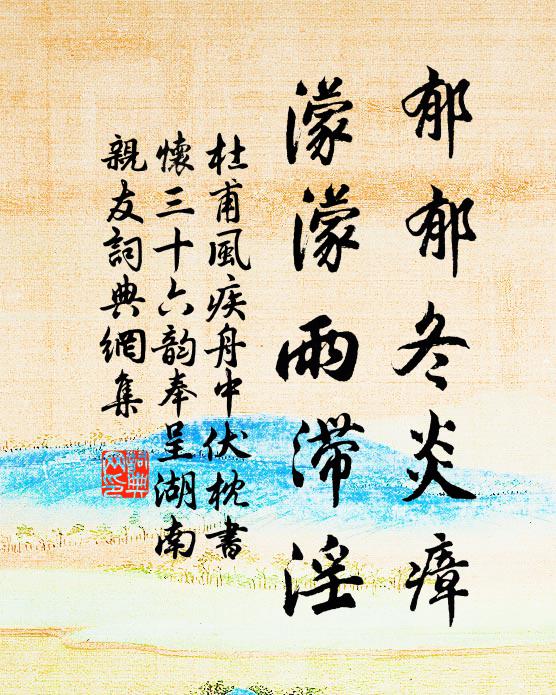 郁郁冬炎瘴
濛濛雨滞淫
杜甫風疾舟中伏枕書
懷三十六韵奉呈湖南
親友詞典網集